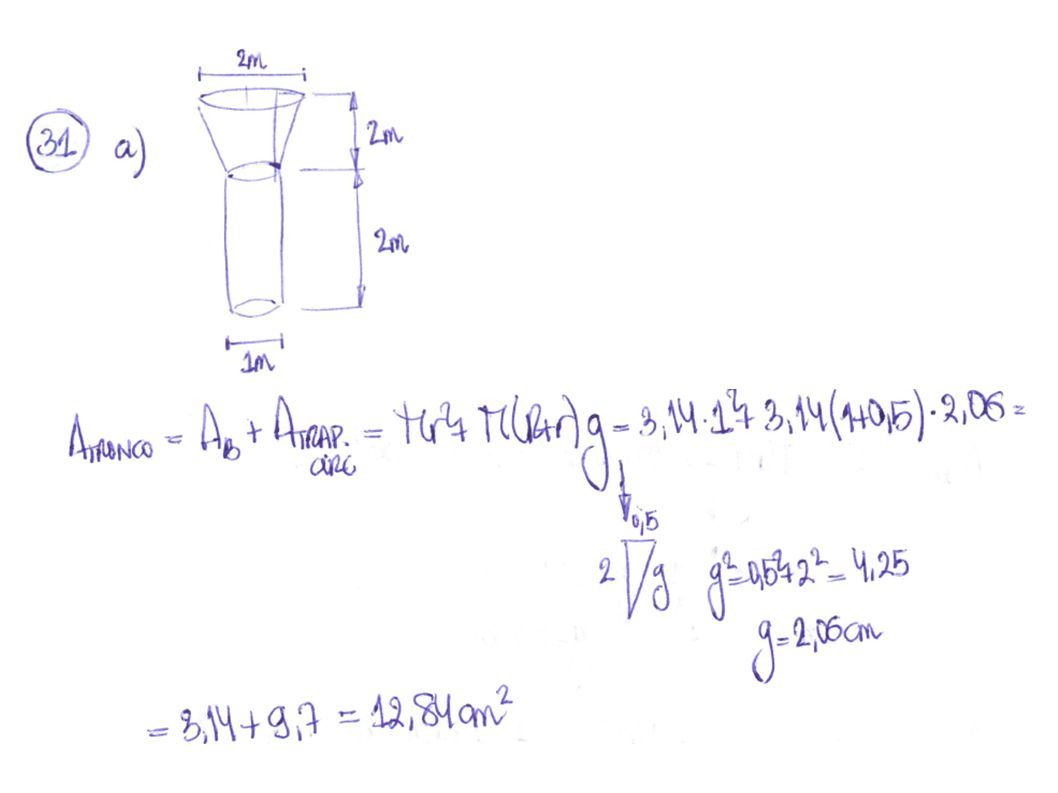 2m
31 a)
2m
2m
1m
A_TRONCO = A_B + A_TRAP. CIRC = πr² + π(R+r)g = 3,14·1² + 3,14(1+0,5)·2,06 =
0,5
2 g g² = 0,5² + 2² = 4,25
g = 2,06 cm
= 3,14 + 9,7 = 12,84 cm²